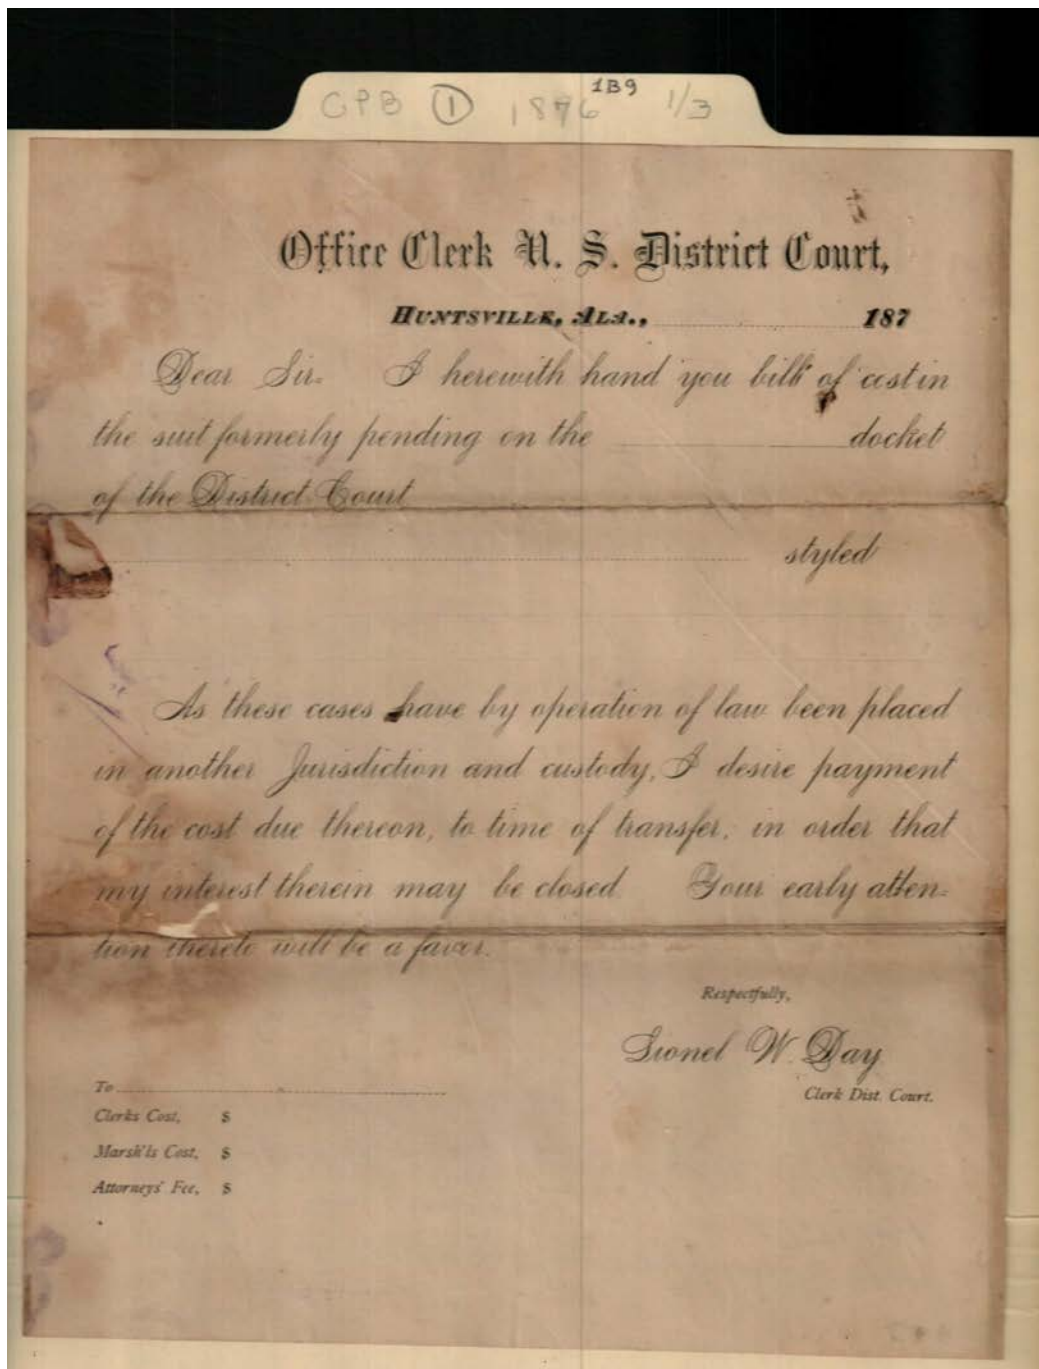 CPB 1 1876 1B9 1/3
Office Clerk U. S. District Court,
HUNTSVILLE, ALA., 187
Dear Sir. I herewith hand you bill of cost in
the suit formerly pending on the docket
of the District Court
styled
As these cases have by operation of law been placed
in another Jurisdiction and custody, I desire payment
of the cost due thereon, to time of transfer, in order that
my interest therein may be closed. Your early atten=
tion thereto will be a favor.
Respectfully,
Lionel W. Day
Clerk Dist. Court.
To
Clerks Cost, $
Marsh'ls Cost, $
Attorneys' Fee, $